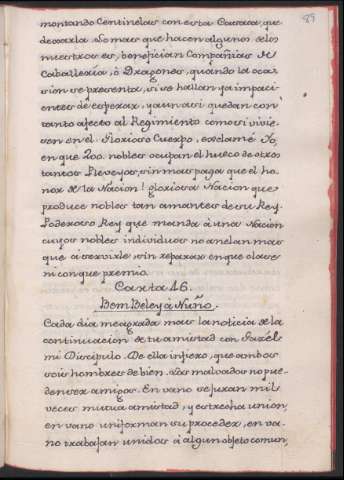 89
montando Centinelas con esta Coraza, que
de oxarla. Lo mas que hacen algunos de los
nuestros es, benefician Compañias de
Caballeria, ò Dragones, quando la oca
sion se presenta, si se hallan ya impaci
entes de esperar, y aun asi quedan con
tanto afecto al Regimiento como si vivie
sen en el. Glorioso Cuerpo, exclamé Yo,
en que 200. nobles ocupan el hueco de otros
tantos Pleveyos, sin mas paga que el ho
nor de la Nacion! gloriosa Nacion que
produce nobles tan amantes de su Rey.
Poderoso Rey que manda à una Nacion
cuyos nobles individuos no anelan mas
que à servirle, sin reparar en que clase
ni con que premio.
Carta 46.
Bem Beley à Nuño.
Cada dia me agrada mas la noticia de la
continuacion de tu amistad con Gazèl
mi Discipulo. De ella infiero, que ambos
sois hombres de bien. Los malvados no pue
den ser amigos. En vano se juran mil
veces mutua amistad, y estrecha union,
en vano uniforman su proceder, en va
no trabajan unidos à algun objeto comun,